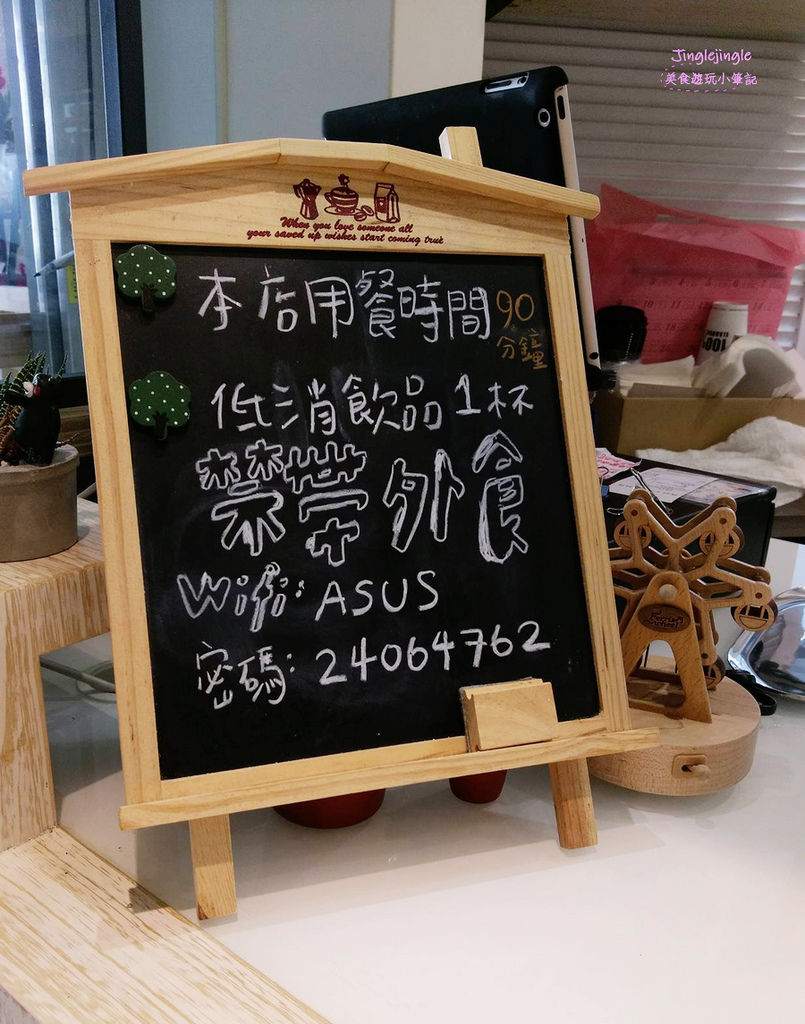 Jinglejingle
美食遊玩小筆記
When you love someone all
your saved up wishes start coming true
本店用餐時間90
分鐘
低消飲品1杯
禁帶外食
Wifi: ASUS
密碼: 24064762